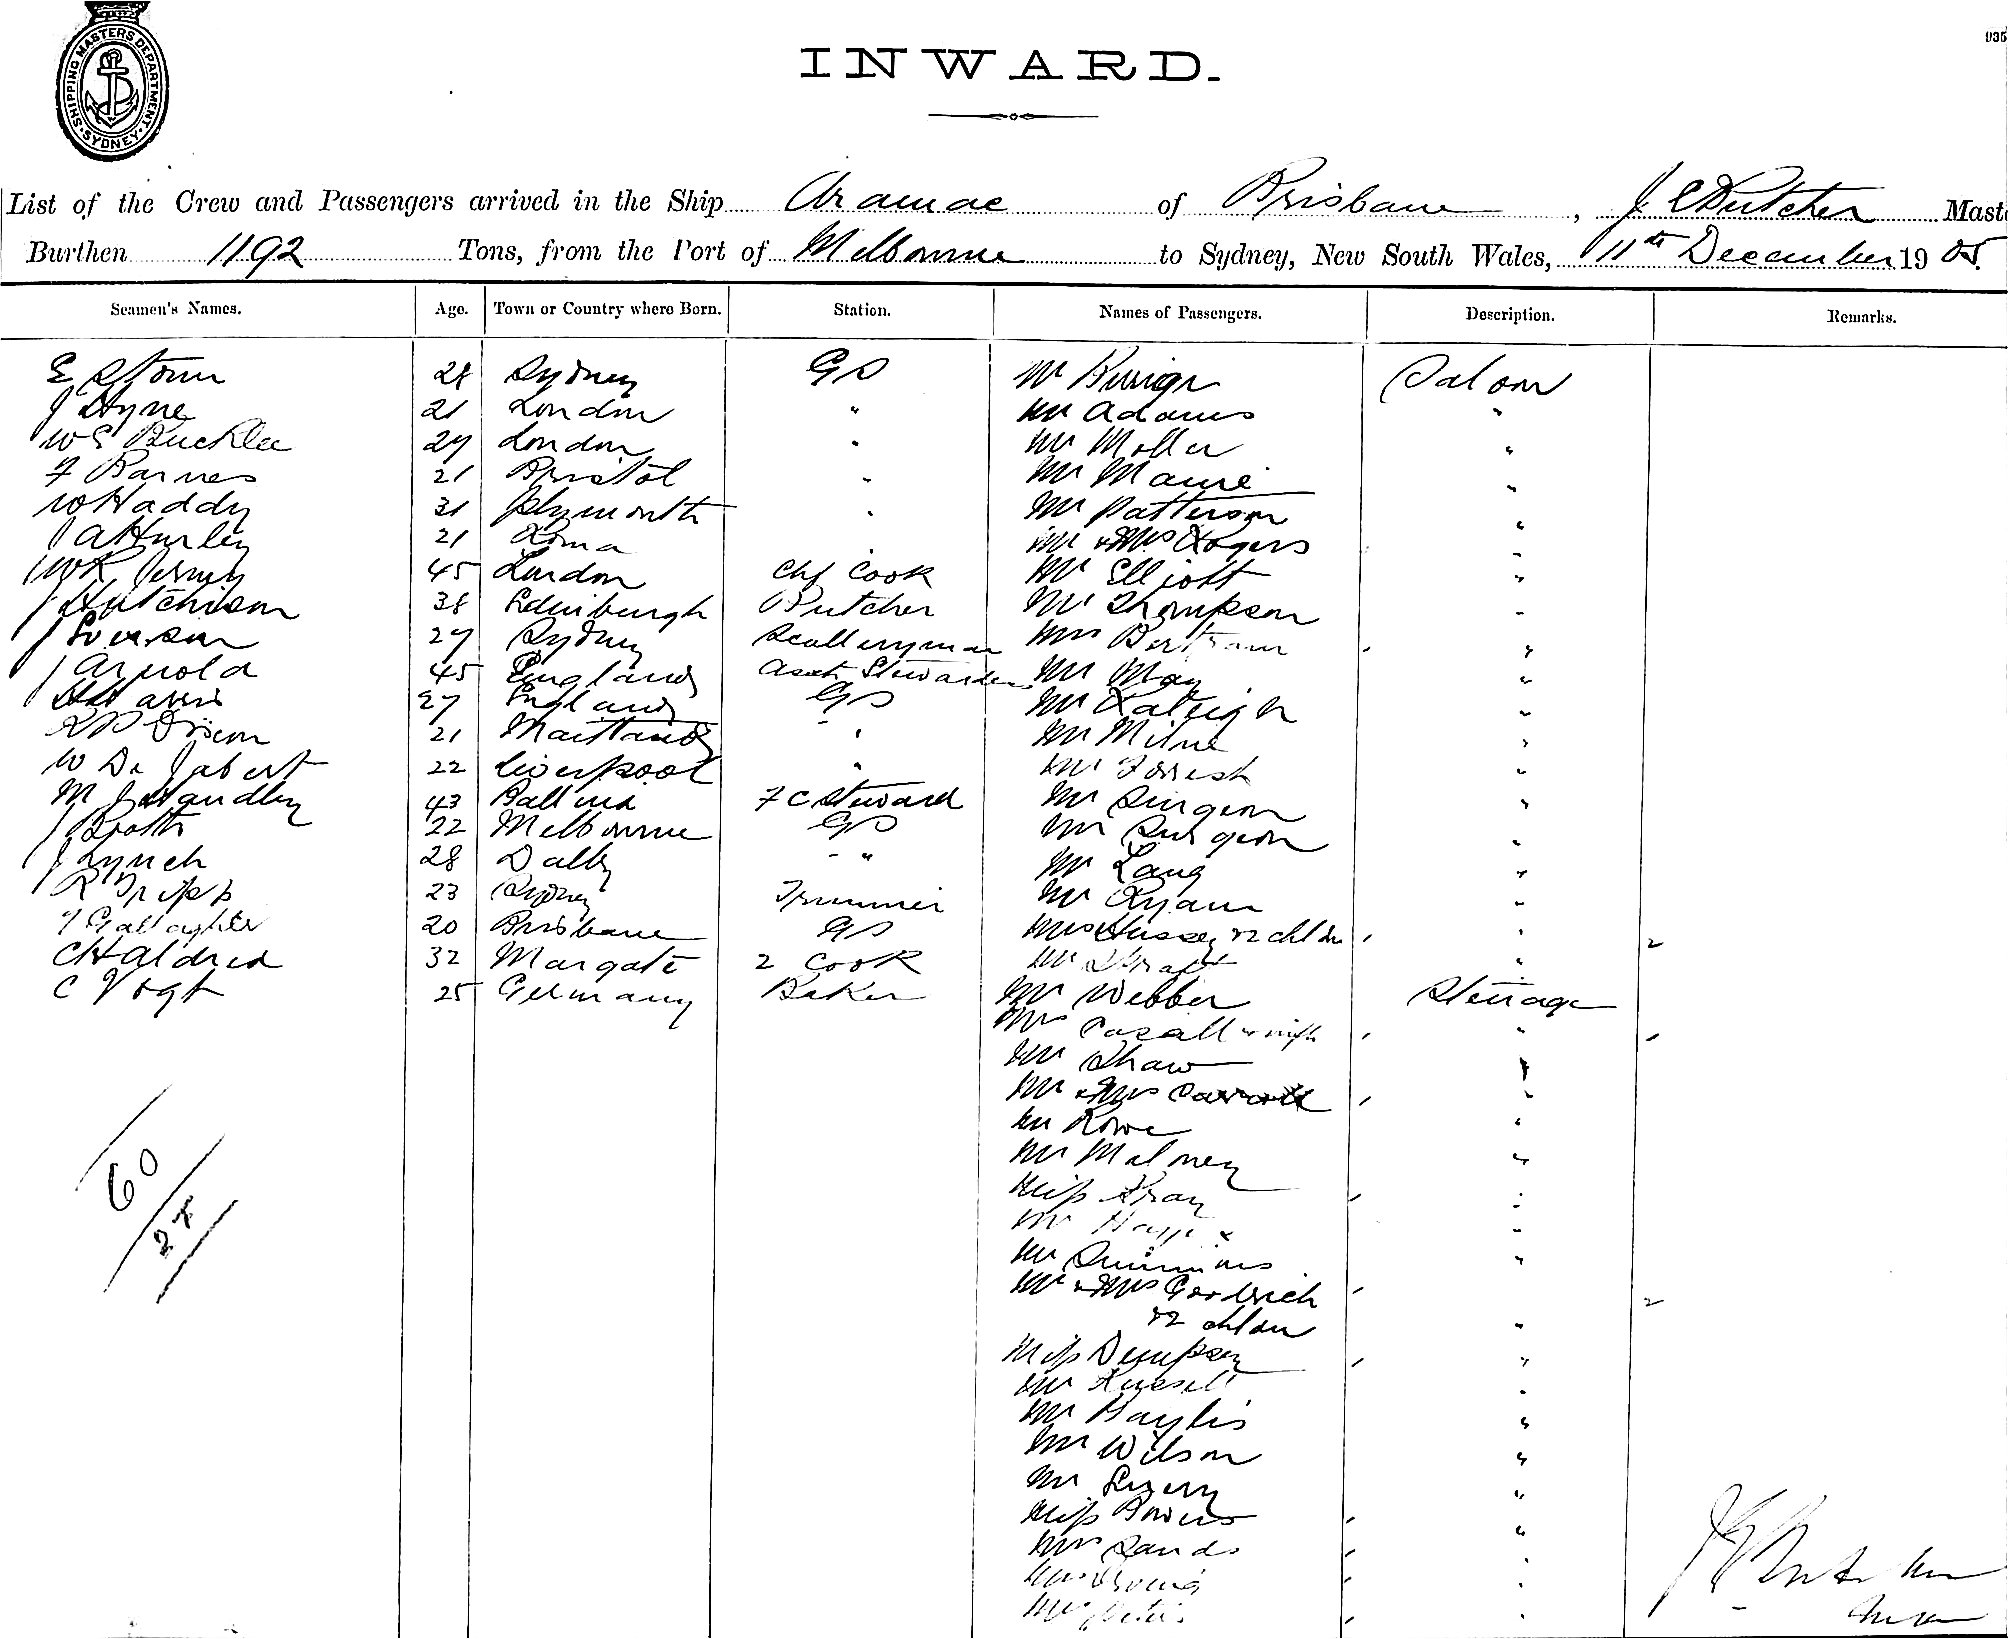 SHIPPING MASTERS DEPARTMENT
SYDNEY
INWARD.
List of the Crew and Passengers arrived in the Ship Aramac of Brisbane, J C Butcher Mast
Burthen 1192 Tons, from the Port of Melbourne to Sydney, New South Wales, 11th December 1905.
Seamen's Names. Age. Town or Country where Born. Station. Names of Passengers. Description. Remarks.
28 Sydney GS Mr Saloon
J Hyne 21 London " Mr Adams "
W E Bucklee 27 London " Mr Moller "
F Barnes 21 Bristol " Mr "
W Haddy 31 Plymouth " Mr Patterson "
J A Hurley 21 Roma " Mr & Mrs Rogers "
45 London Chf Cook Mr Elliott "
J Hutchison 38 Edinburgh Butcher Mr Thompson "
J 27 Sydney Scalleryman Mrs Bertram "
J Arnold 45 England Asst Stewardess Mr May "
H Harris 27 England GS Mr Raleigh "
21 Maitland " Mr Milne "
W De Jabert 22 Liverpool " Mr Forrest
M J Handley 43 Ballina F C Steward Mr Surgeon "
J Scott 22 Melbourne GS Mr Surgeon "
J Lynch 28 Dalby " " Mr Lang "
R Tripp 23 Sydney Trimmer Mr Ryan "
Gallagher 20 Brisbane GS Mrs Hussey & 2 chldn " 2
C Haldred 32 Margate 2 Cook Mr "
C Vogt 25 Germany Baker Mr Webber Steerage
Mrs Casall & inft "
Mr Shaw "
Mr & Mrs Carroll "
Mr Rowe "
Mr Maloney "
Miss "
Mr "
Mr Simmons "
Mr & Mrs Goodrich 2
& 2 chldn "
Miss Dempsey "
Mr Russell "
Mr Baylis "
Mr Wilson "
Mr "
Miss Bowers "
Mrs Sands "
60